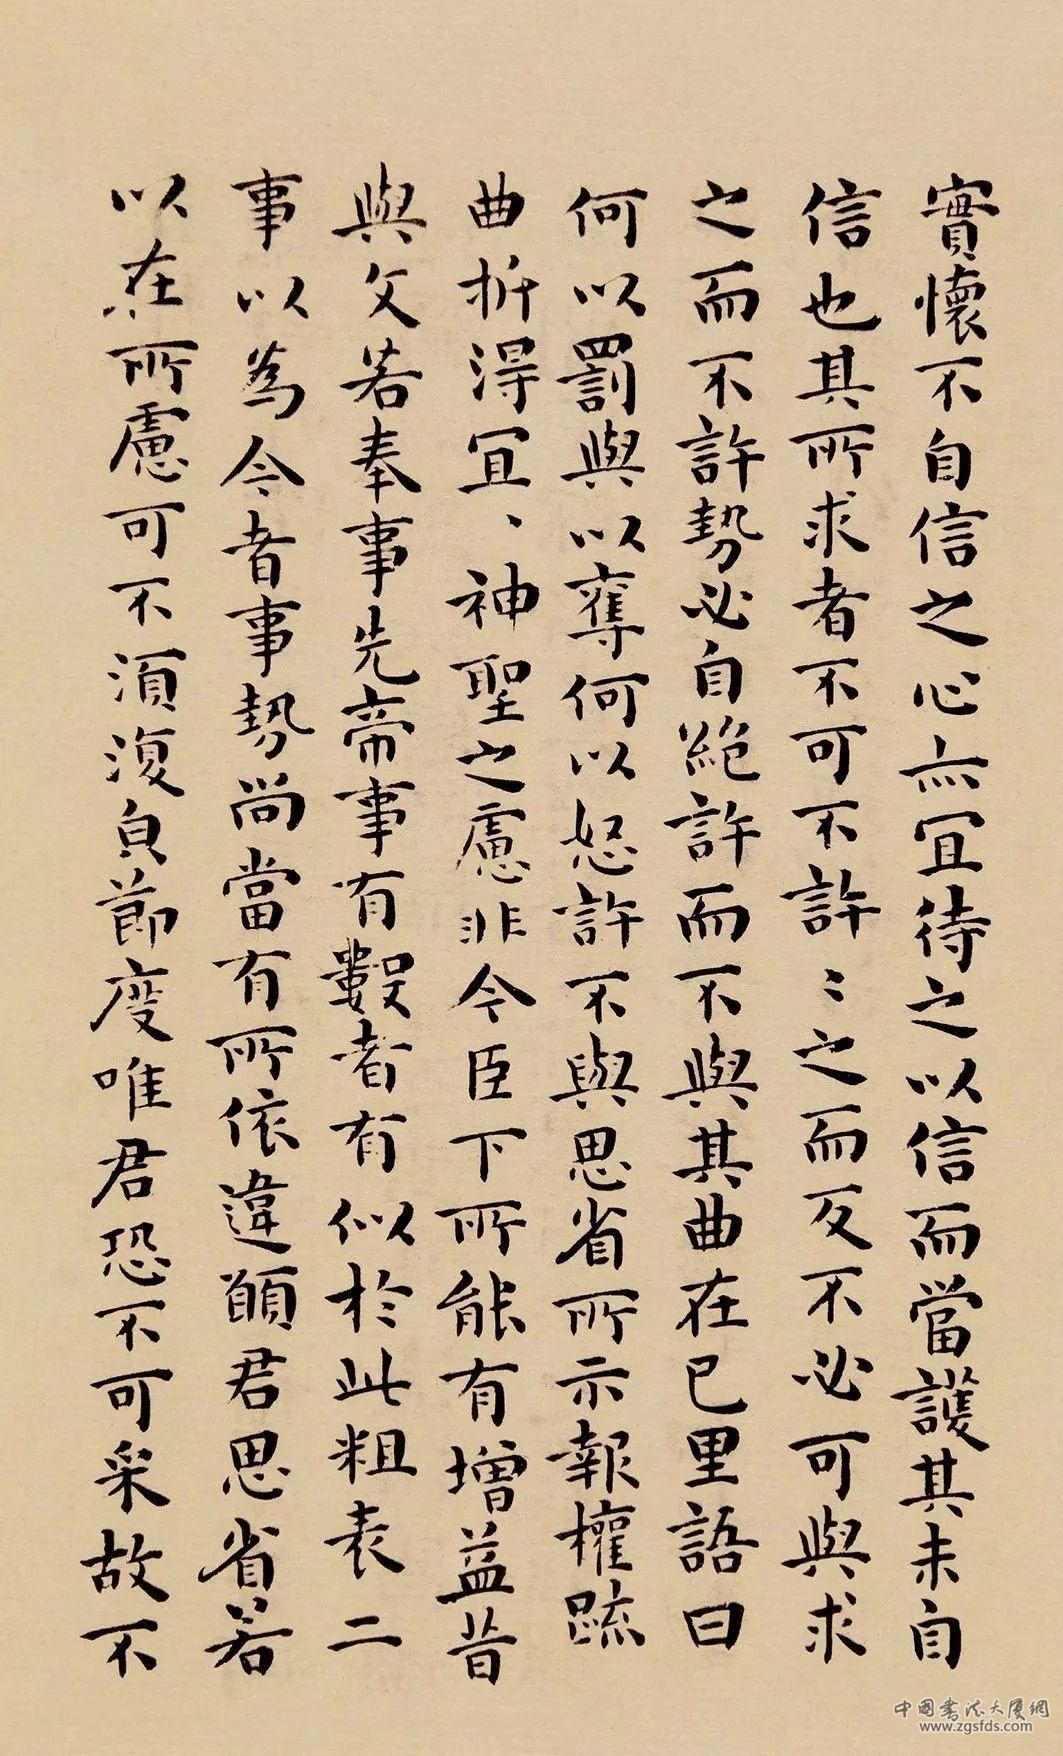 實懷不自信之心亦宜待之以信而當護其未自
信也其所求者不可不許〻之而反不必可與求
之而不許勢必自絕許而不與其曲在已里語曰
何以罰與以奪何以怒許不與思省所示報權疏
曲折得宜、神聖之慮非今臣下所能有增益昔
與文若奉事先帝事有數者有似於此粗表二
事以為今者事勢尚當有所依違願君思省若
以在所慮可不須復皃節度唯君恐不可采故不
中国書法大厦網
www.zgsfds.com